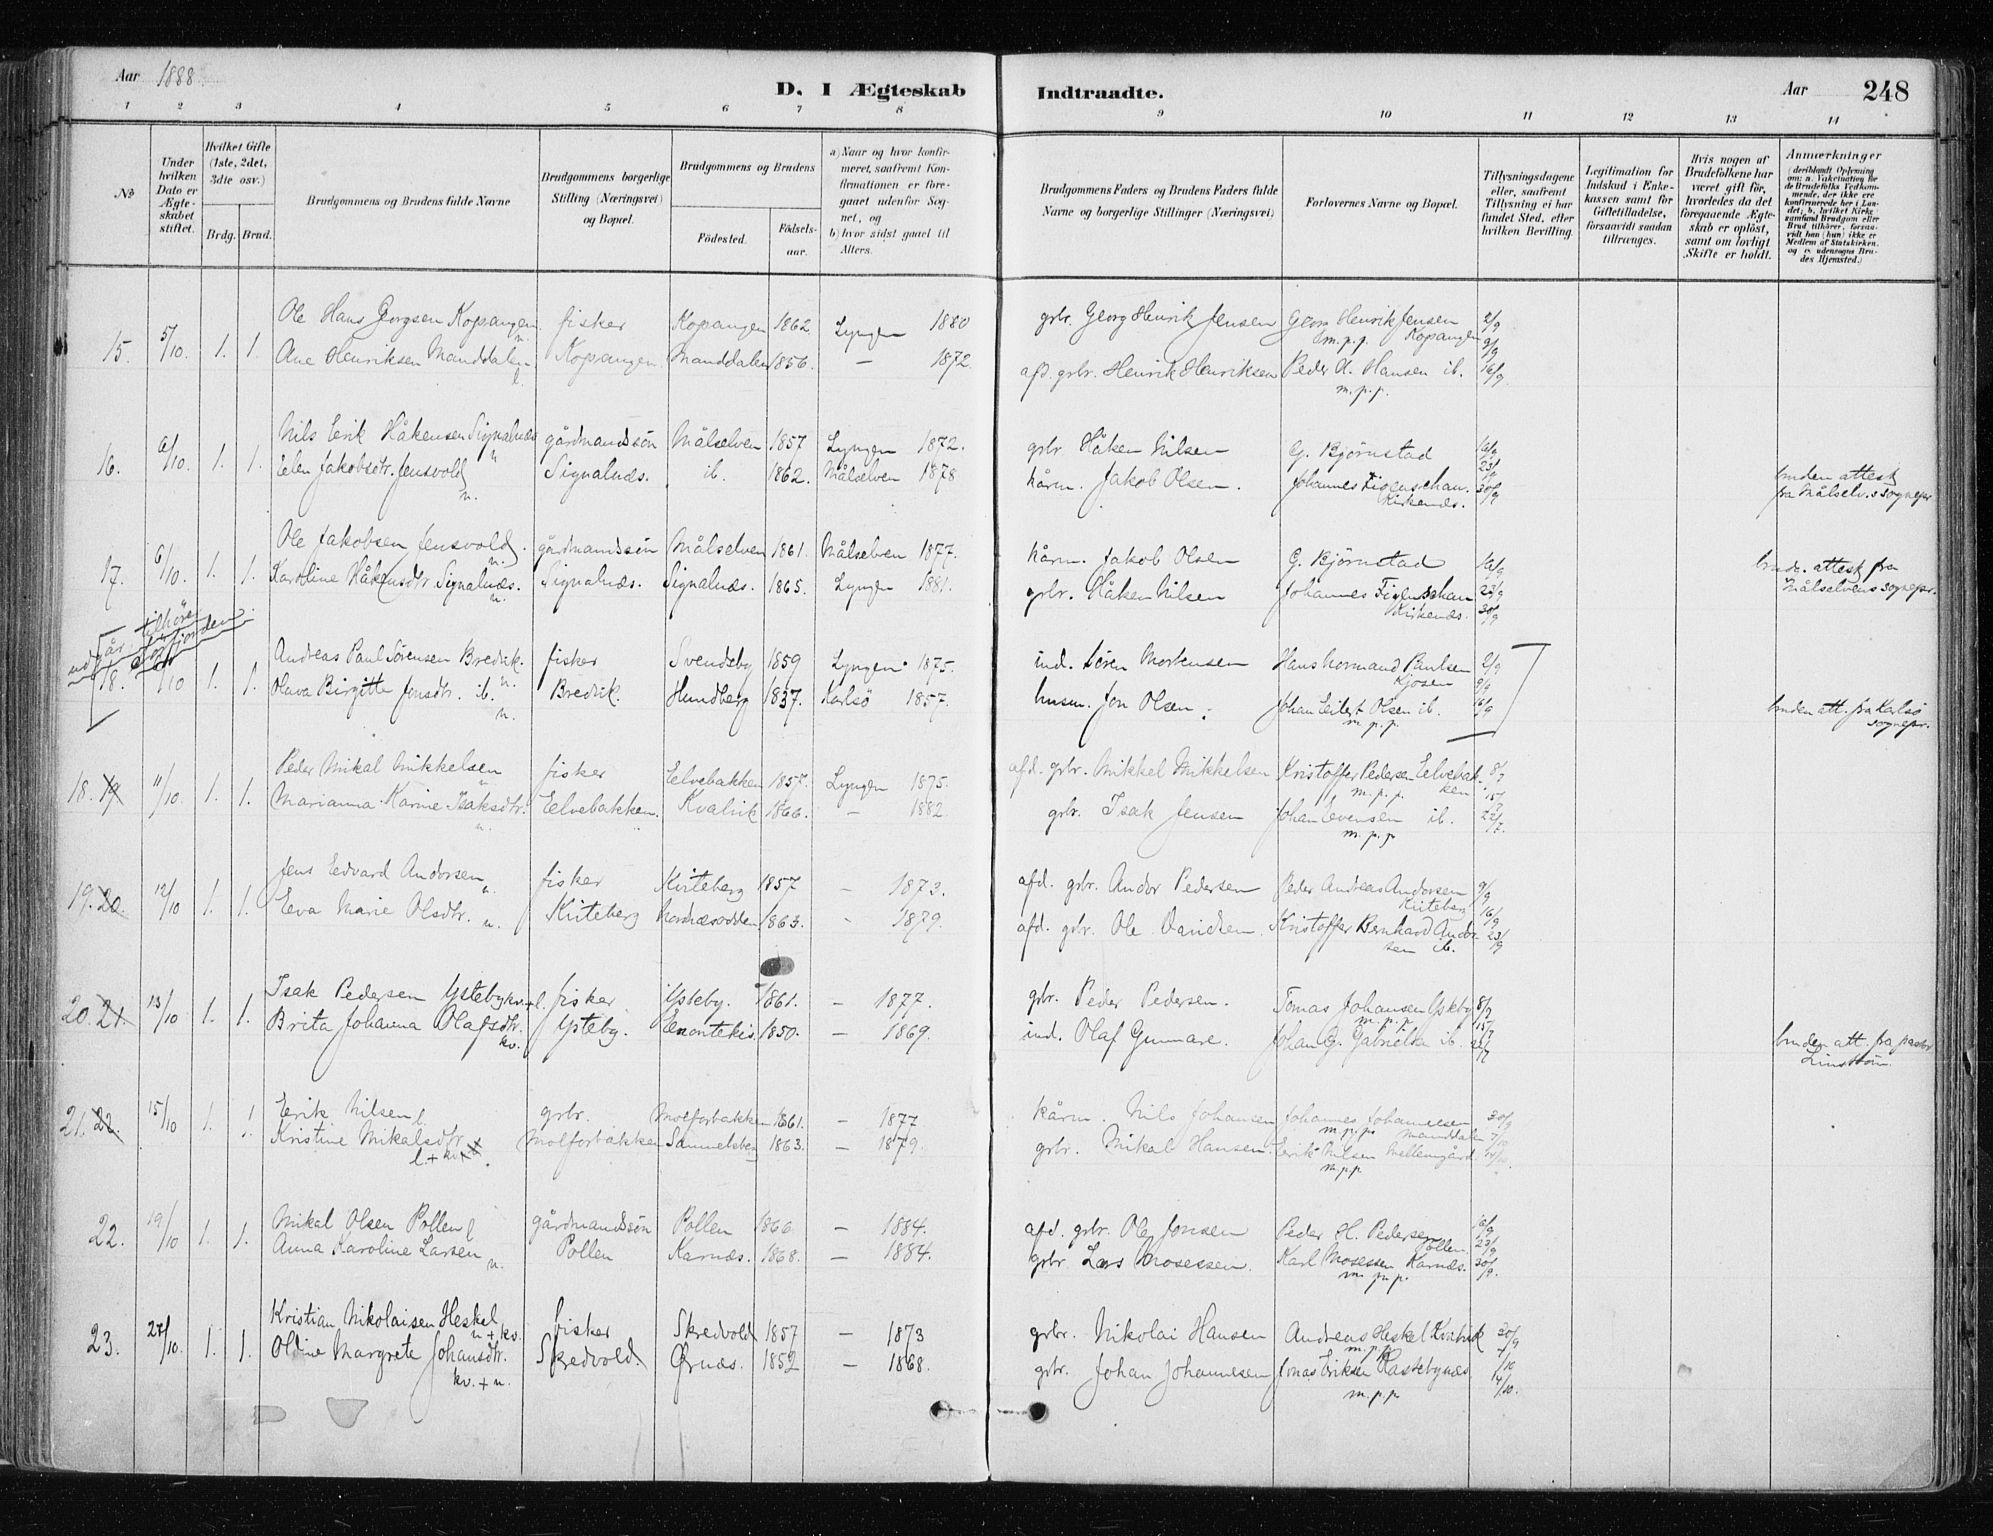 Aar 1888.
D. I Ægteskab Indtraadte.
Aar 248
1 2 3 4 5 6 7 8 9 10 11 12 13 14
No
Under hvilken Dato er Ægteskabet stiftet.
Hvilket Gifte (1ste, 2det, 3die osv.)
Brdg. Brud.
Brudgommens og Brudens fulde Navne
Brudgommens borgerlige Stilling (Næringsvei) og Bopæl.
Brudgommens og Brudens
Fødested. Fødselsaar.
a) Naar og hvor konfirmeret, saafremt Konfirmationen er foregaaet udenfor Sognet, og
b) hvor sidst gaaet til Alters.
Brudgommens Faders og Brudens Faders fulde Navne og borgerlige Stillinger (Næringsvei)
Forlovernes Navne og Bopæl.
Tillysningsdagene eller, saafremt Tillysning ei har fundet Sted, efter hvilken Bevilling.
Legitimation for Indskud i Enkekassen samt for Giftetilladelse, forsaavidt saadan tiltrænges.
Hvis nogen af Brudefolkene har været gift før, hvorledes da det foregaaende Ægteskab er opløst, samt om lovligt Skifte er holdt.
Anmærkninger (deriblandt Oplysning om: a. Vakcination for de Brudefolks Vedkommende, der ikke ere konfirmerede her i Landet; b. hvilket Kirkesamfund Brudgom eller Brud tilhører, forsaavidt han (hun) ikke er Medlem af Statskirken, og c. udensogns Brudes Hjemsted.)
15. 5/10. 1. 1. Ole Hans Georgsen Kopangen n. fisker Kopangen 1862 Lyngen 1880 grbr. Georg Henrik Jensen Georg Henrik Jensen Kopangen m.p.p. 2/9 9/9
Ane Henriksen Manddalen l. Kopangen Manddalen 1856. — 1872. afd. grbr. Henrik Henriksen Peder A. Hansen ib. m.p.p. 16/9
16. 6/10. 1. 1. Nils Erik Håkensen Signalnæs n gårdmandssøn Målselven 1857 Lyngen 1872. grbr Håken Nilsen G. Bjørnstad 16/9 23/9
Elen Jakobsdtr. Jensvold n. Signalnæs. ib. 1862. Målselven 1878 kårm. Jakob Olsen. Johannes Figenschau. Kirkenæs. 30/9 bruden attest fra Målselv.s sognepr.
17. 6/10. 1. 1. Ole Jakobsen Jensvold. n. gårdmandssøn Målselven 1861. Målselven 1877. kårm. Jakob Olsen G. Bjørnstad 16/9
Karoline Håkensdtr. Signalnæs. n. Signalnæs. Signalnæs. 1865. Lyngen 1881. grbr. Håken Nilsen Johannes Figenschau Kirkenæs. 23/9 30/9 brudg. attest fra Målselvens sognepr.
udgår tilhører Sørfjorden
18. /10 1. 1. Andreas Paul Sørensen Bredvik. n. fisker Svendsby 1859 Lyngen. 1875. ind. Søren Mortensen Hans Normand Paulsen Kjosen 2/9 9/9
Olava Birgitte Jonsdtr. ib. n. Bredvik. Hundberg 1837. Karlsø 1857. husm. Jon Olsen. Johan Eilert Olsen ib. m.p.p. 16/9 bruden att. fra Karlsø sognepr.
18. 19 11/10. 1. 1. Peder Mikal Mikkelsen n fisker Eelvebakken 1857. Lyngen 1875. afd. grbr. Mikkel Mikkelsen Kristoffer Pedersen Eelvebakken m.p.p. 8/7 15/7
Marianna Karine Isaksdtr. n. Eelvebakken. Kvalvik 1866. — 1882. grbr. Isak Jensen Johan Evensen ib. m.p.p 22/7.
19. 20. 12/10 1. 1. Jens Eedvard Andorsen n. fisker Kviteberg 1857 — 1873. afd. grbr. Andor Pedersen Peder Andreas Andorsen Kviteberg 9/9 16/9
Eeva Marie Olsdtr. n. Kviteberg Nordnæsodden 1863. — 1879. afd. grbr. Ole Davidsen. Kristoffer Bernhard Andorsen ib. 23/9
20. 21. 13/10 1. 1. Isak Pedersen Ysteby kv.+l. fisker Ysteby. 1861. — 1877. grbr. Peder Pedersen. Tomas Johansen Ysteby m.p.p. 8/7 15/7
Brita Johanna Olafsdtr. kv. Ysteby. Eenontekis. 1850. — 1869. ind. Olaf Gunnare. Johan G. Gabrielsa ib. 22/7 bruden att. fra pastor
21. 22. 15/10 1. 1. Eerik Nilsen l. grbr. Molforbakken 1861. — 1877 kårm. Nils Johansen Johannes Johannesen m.p.p. Manddalen 30/9 7/10
Kristine Mikalsdtr. l.+kv. Molforbakken Samuelsberg 1863. — 1879. grbr. Mikal Hansen. Eerik Nilsen Mellemgård m.p.p. 14/10.
22. 19/10 1. 1. Mikal Olsen Pollen l gårdmandssøn Pollen 1866. — 1884. afd. grbr. Ole Jonsen Peder H. Pedersen Pollen. 16/9 23/9
Anna Karoline Larsen n. Pollen Karnæs. 1868. — 1884. grbr. Lars Mosessen. Karl Mosessen Karnæs. m.p.p. 30/9.
23. 27/10. 1. 1. Kristian Nikolaisen Heskel n+kv. fisker Skredvold 1857 — 1873 grbr. Nikolai Hansen Andreas Heskel Kvalvik m.p.p. 30/9
Oldine Margrete Johansdtr. kv.+n. Skredvold. Ørnæs. 1852 — 1868. grbr. Johan Johannesen Jonas Eriksen Rastebynæs m.p.p 7/10 14/10.